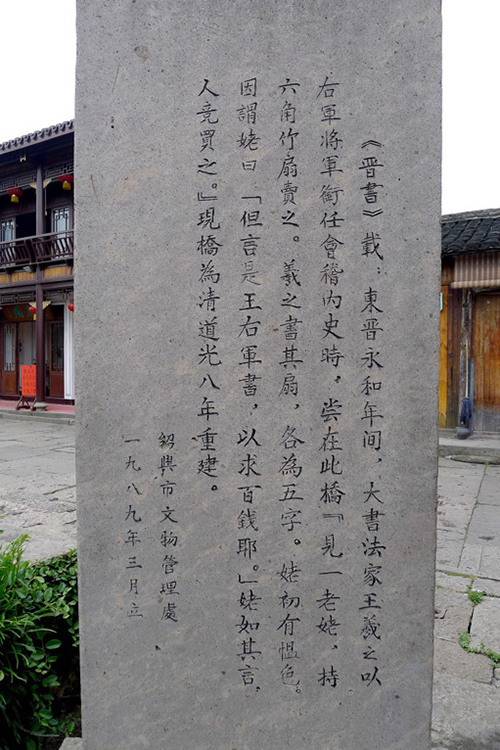 《晋書》載：東晋永和年间，大書法家王羲之以
右軍将軍銜任會稽内史時，尝在此橋『見一老姥，持
六角竹扇賣之。羲之書其扇，各為五字。姥初有愠色。
因謂姥曰「但言是王右軍書，以求百錢耶。」姥如其言，
人竞買之。』現橋為清道光八年重建。
紹興市文物管理處
一九八九年三月立